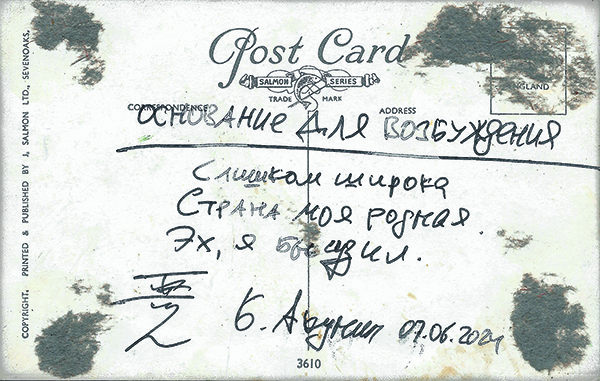 COPYRIGHT. PRINTED & PUBLISHED BY J. SALMON LTD., SEVENOAKS.
Post Card
SALMON SERIES
TRADE MARK
CORRESPONDENCE
ADDRESS
ENGLAND
ОСНОВАНИЕ ДЛЯ ВОЗБУЖДЕНИЯ
Слишком широка
Страна моя родная.
Эх, я бы узил.
Б. Акунин 07.06.2024
3610